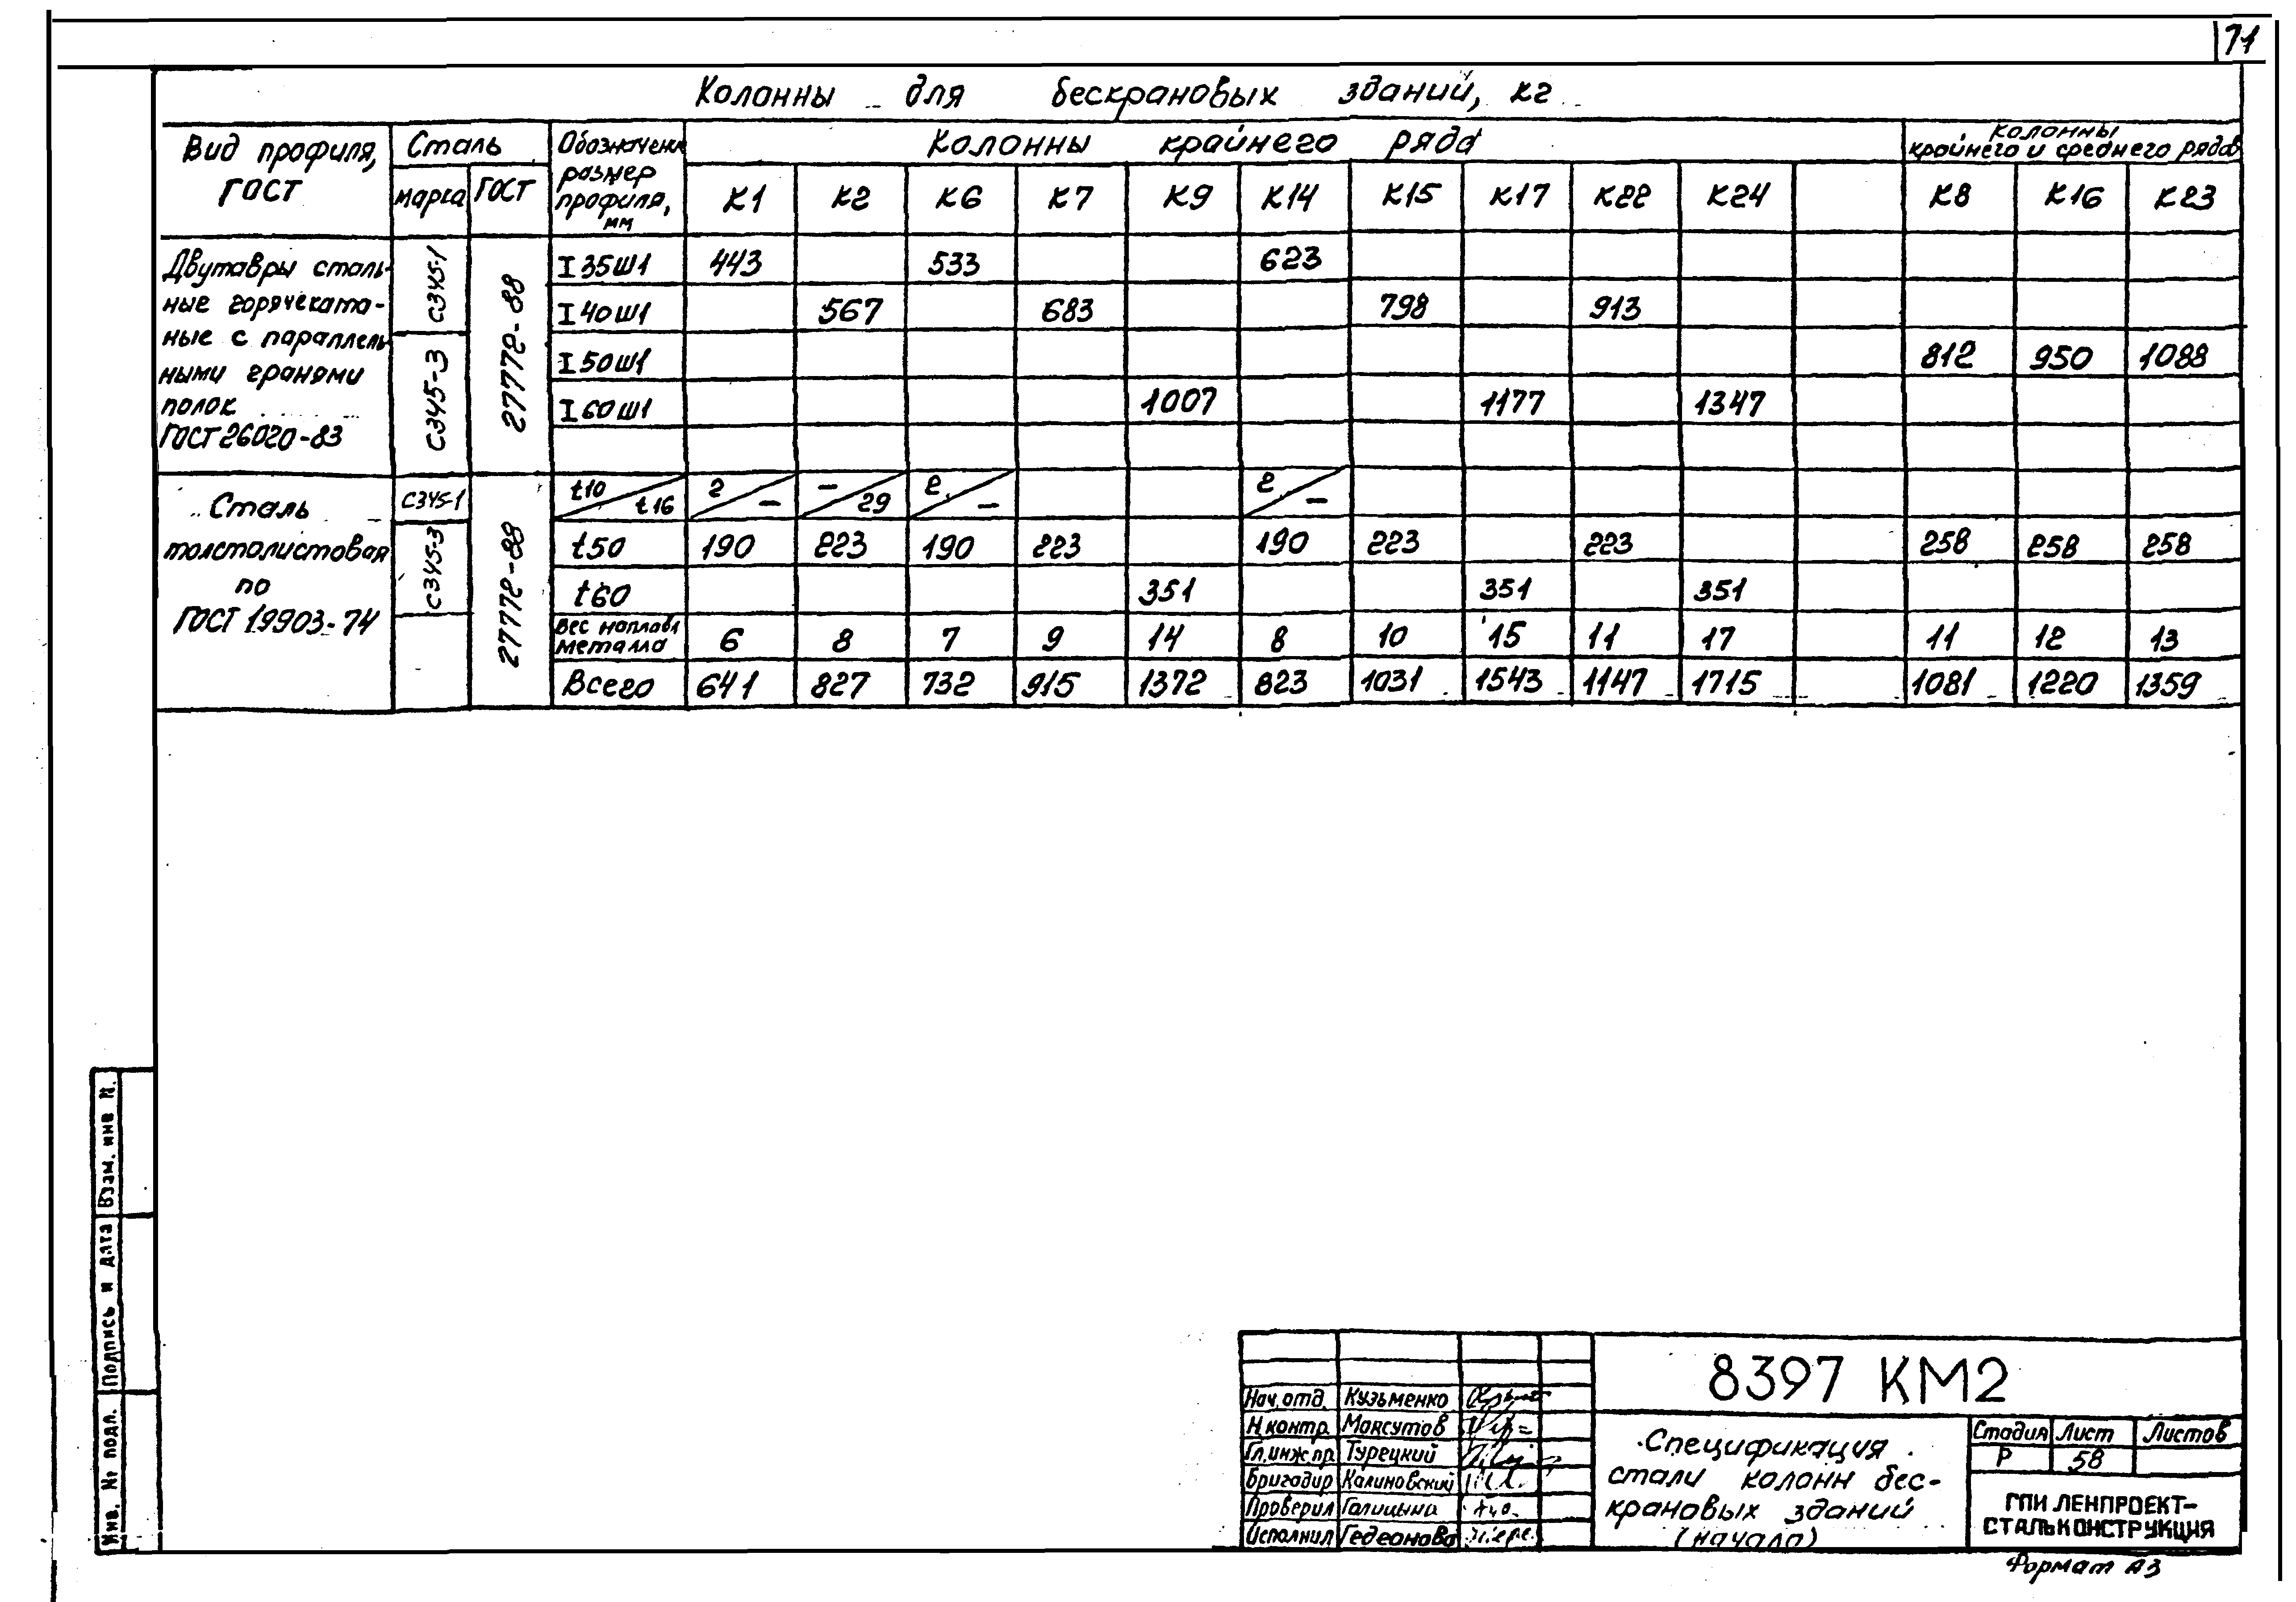 71
Колонны для бескрановых зданий, кг
Вид профиля, ГОСТ | Сталь | Обозначен. размер профиля, мм | Колонны крайнего ряда | Колонны крайнего и среднего рядов
марка | ГОСТ | К1 | К2 | К6 | К7 | К9 | К14 | К15 | К17 | К22 | К24 | К8 | К16 | К23
Двутавры сталь-
ные горячеката-
ные с параллель
ными гранями
полок
ГОСТ 26020-83
С345-1
С345-3
27772-88
I 35Ш1 443 533 623
I 40Ш1 567 683 798 913
I 50Ш1 812 950 1088
I 60Ш1 1007 1177 1347
Сталь
толстолистовая
по
ГОСТ 19903-74
С345-1
С345-3
27772-88
t10/t16 2/– –/29 2/– 2/–
t50 190 223 190 223 190 223 223 258 258 258
t60 351 351 351
Вес наплавл металла 6 8 7 9 14 8 10 15 11 17 11 12 13
Всего 641 827 732 915 1372 823 1031 1543 1147 1715 1081 1220 1359
Взам. инв N.
Подпись и дата
Инв. № подл.
Нач. отд. Кузьменко
Н.контр. Максутов
Гл.инж.пр. Турецкий
Бригадир Калиновский
Проверил Галицына
Исполнил Гедеонова
8397 КМ2
Спецификация
стали колонн бес-
крановых зданий
(начало)
Стадия Лист Листов
Р 58
ГПИ ЛЕНПРОЕКТ-
СТАЛЬКОНСТРУКЦИЯ
Формат А3